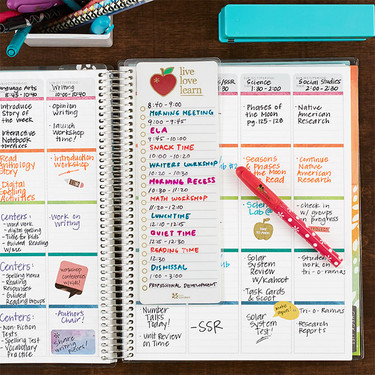 Language Arts
8:45-10:40
Introduce
Story of the
Week
Interactive
Notebook
Read
Anthology
Story
Digital
Spelling
Activities
Centers:
- word work
- digital spelling
- Guided Reading
Centers:
- Spelling Menu
- Reading
Responses
- Guided
Reading Groups
Centers:
- Non-Fiction
Texts
- Spelling Test
- Vocabulary
Practice
Writing
10:00-10:40
- Opinion
Writing
- Launch
Workshop
time!
- Introduction
- Workshop
- Work on
Writing
- Author's
Chair!
share
writing
live
love
learn
8:40-9:00
MORNING MEETING
9:00-9:45
ELA
9:45-10:00
SNACK TIME
10:00-10:20
WRITERS WORKSHOP
10:20-10:30
MORNING RECESS
10:30-11:30
MATH WORKSHOP
11:30-12:10
LUNCHTIME
12:10-12:15
QUIET TIME
12:15-12:30
READING TIME
12:30
DISMISSAL
1:00-3:00
PROFESSIONAL DEVELOPMENT
/SSR
Number
Talks
Today!
- Unit Review
on Time
-SSR
Science
1:30-2:00
- Phases of
the Moon
pg. 125-128
- Seasons
& Phases
the Moon
Read
- Science
Lab@
- Solar
System
Review
w/Kahoot
Task Cards
& Scoot
- Solar
System
Test!
Social Studies
2:00-2:30
- Native
American
Research
- Continue
Native
American
Research
- check in
w/ groups
on progress
- Students
work on
tri-o-ramas
- tri-o-ramas
- Research
Reports